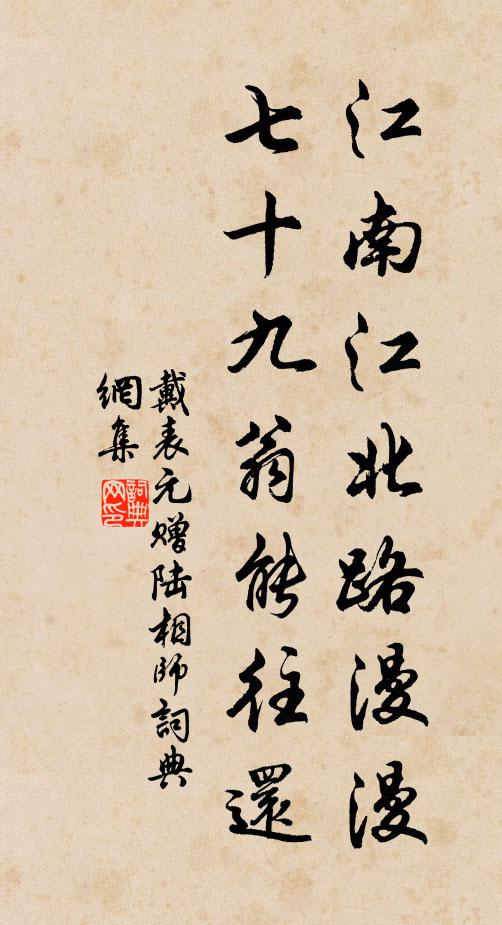 江南江北路漫漫
七十九翁能往還
戴表元赠陆相師詞典
網集
詞典
网印